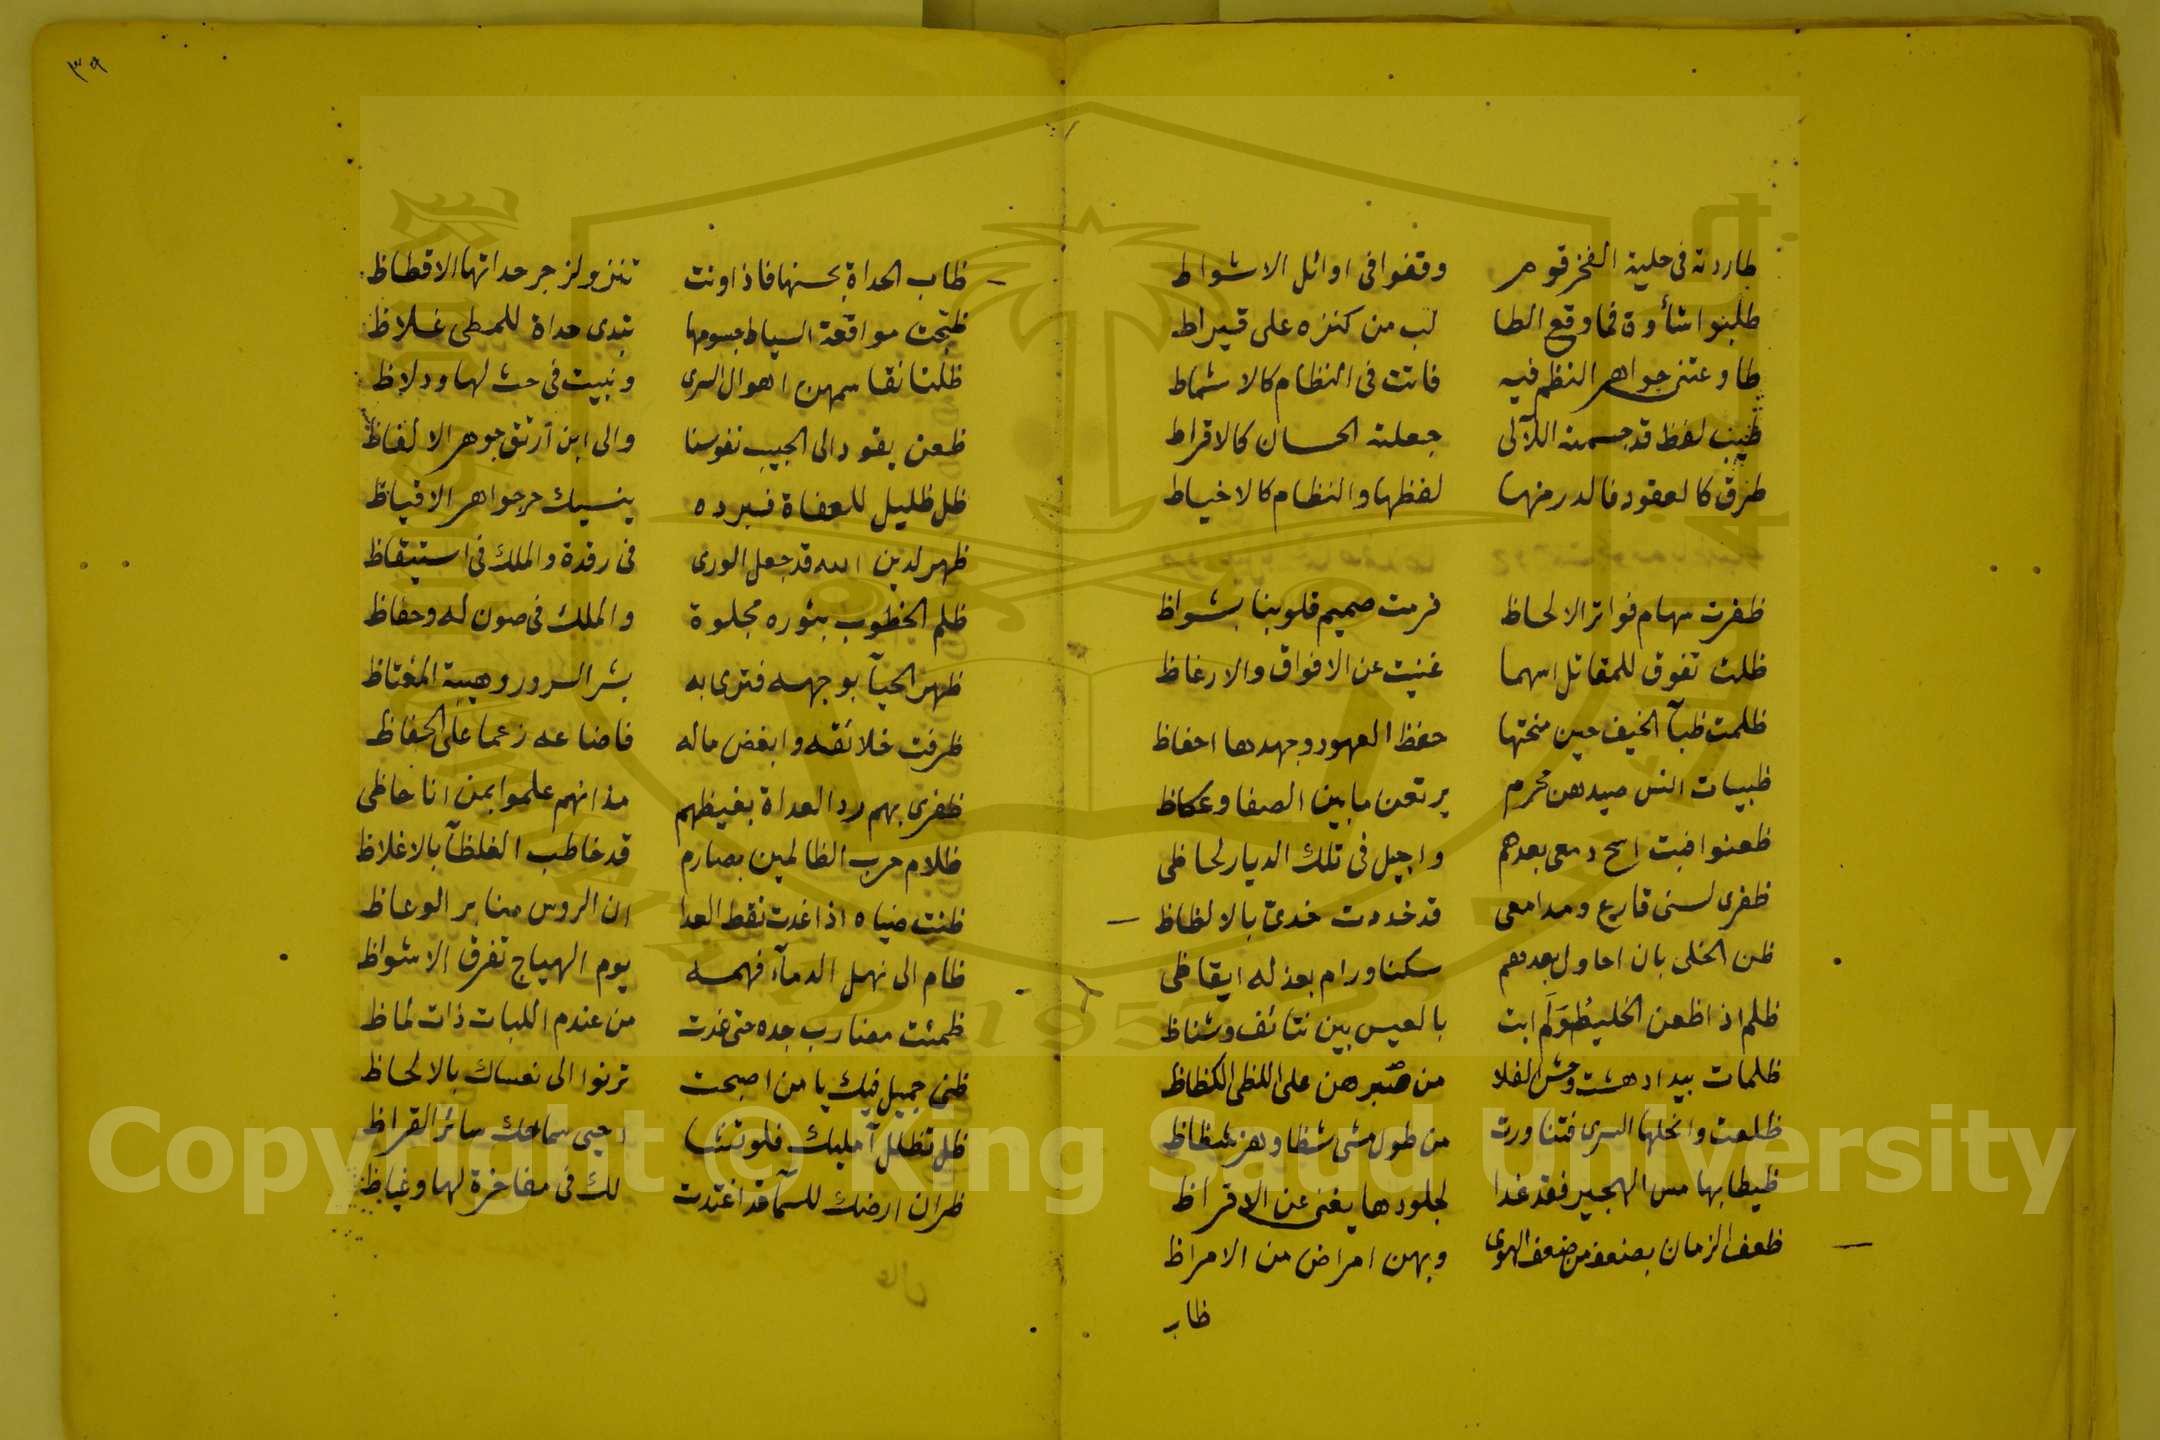 طاردته فى حلية الفخر قوم وقفوا فى اوائل الاشواط
طلبوا شأوه فما وقع الطا لب من كنزه على قيراط
طاوعتنى جواهر النظم فيه فاتت فى النظام كالاشماط
طيب لفظ قد جسمته اللآلى جعلته الحسان كالاقراط
طرق كالعقود فالدر منها لفظها والنظام كالاخياط
ظفرت سهام فواتر الالحاظ فرمت صميم قلوبنا بشواظ
ظلت تفوق للمقاتل اسهما غنيت عن الافواق والارعاظ
ظلمت ظبآ الخيف حين منحتها حفظ العهود وجهدها احفاظ
ظبيات انس صيدهن محرم يرتعن ما بين الصفا وعكاظ
ظعنوا فبت اسح دمعى بعدهم واجيل فى تلك الديار لحاظى
ظفرى لسنى قارع ومدامعى قد خددت خدى بالالظاظ
ظن الخلى بان احاول بعدهم سكنا ورام بعذله ايقاظى
ظلم اذا ظعن الخليط ولم ابت بالعيس بين نتائف وشناظ
ظلمات بيد ادهشت وحش الفلا من صبرهن على اللظى الكظاظ
ظلعت وانحلها السرى فتناورت من طول مشى شظا وهز شظاظ
ظيطا بها مس الهجير فقد غدا لجلودها يغنى عن الاقراظ
ظعف الزمان بضعف من ضعف الهوى وبهن امراض من الامراظ
ظاب
٣٩
ظاب الحداة بحسنها فاذا ونت تنزو لزجر حداتها الاقظاظ
ظبحت مواقعة السياط جسومها بيدى حداة للمطى غلاظ
ظلنا نقاسمهن اهوال السرى ونبيت فى حث لها ودلاظ
ظعن يقود الى الحبيب نفوسنا والى ابن ارتق جوهر الالفاظ
ظل ظليل للعفاة فبرده ينسيك حر جواهر الاقياظ
ظهر لدين الله قد جعل الورى فى رقدة والملك فى استيقاظ
ظلم الخطوب بنوره مجلوة والملك فى صون له وحفاظ
ظهر الحيآ بوجهه فترى به بشر السرور وهيبة المغتاظ
ظرفت خلائقه وابغض ماله فاضاعه زعما على الحفاظ
ظفرى بهم رد العداة بغيظهم مذ انهم علموا بمن انا حاظى
ظلام حرب الظالمين بصارم قد خاطب الغلظآ بالاغلاظ
ظنت ضباه اذا غدت نقط العدا ان الروس منابر الوعاظ
ظام الى نهل الدمآء فهمه يوم الهياج تفرق الاشواظ
ظمئت مضارب حده حتى غدت من عندم اللبات ذات لماظ
ظنى جميل فيك يا من اصبحت ترنوا الى نعماك بالالحاظ
ظل تظلل آمليك فلو تشا احيى سماحك سائر القراظ
ظران ارضك للسمآ قد اغتدت لك فى مفاخرة لها وغياظ
Copyright © King Saud University
1957